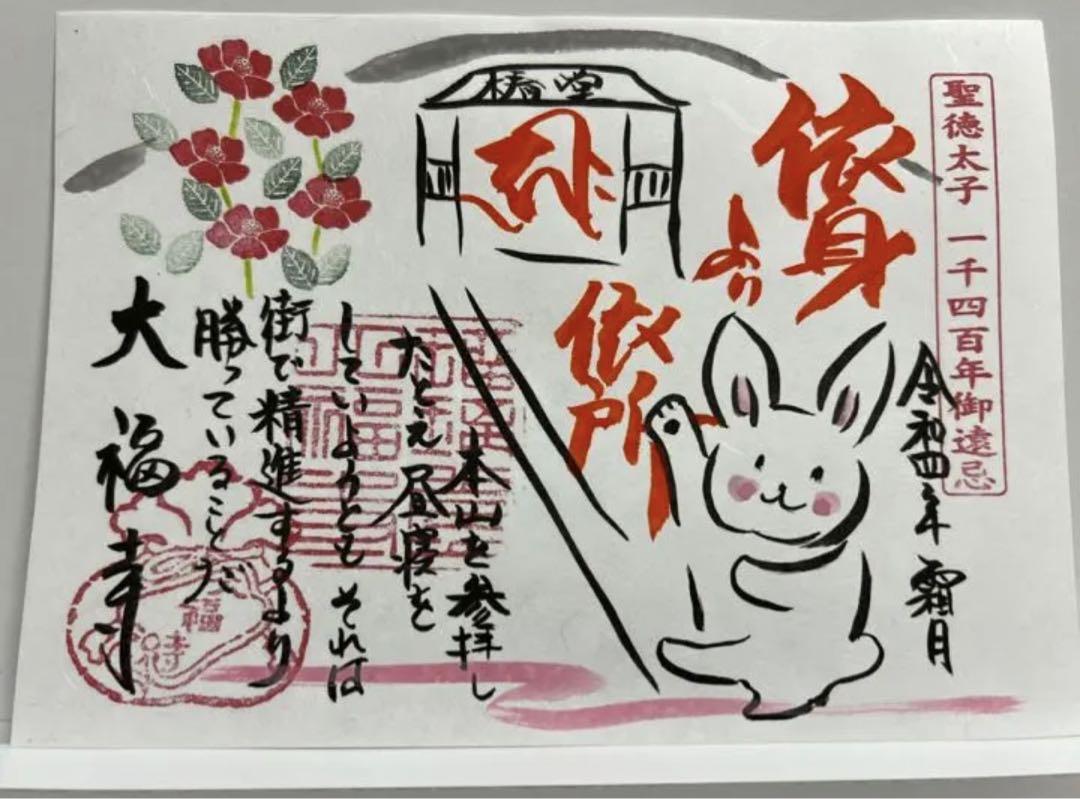 聖徳太子 一千四百年御遠忌
令和四年 霜月
依身
より
依所
椿堂
本山を参拝し
たとえ昼寝を
していようとも それは
街で精進するより
勝っていることだ
大福寺